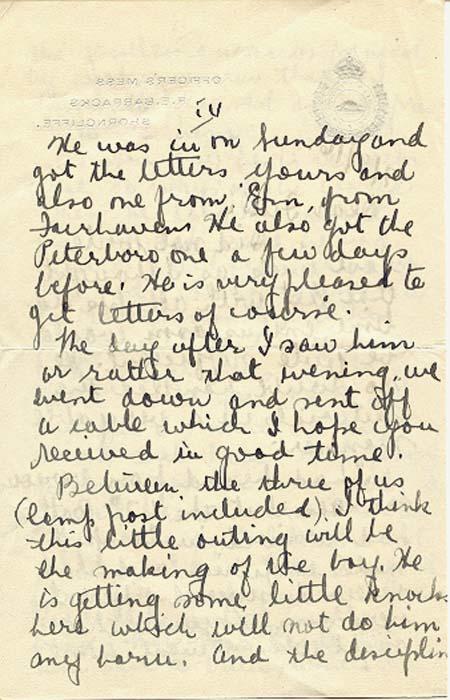 OFFICER'S MESS
R.E. BARRACKS
SHORNCLIFFE.
iv
He was in on Sunday and
got the letters yours and
also one from Ern, from
Fairhavens He also got the
Peterboro one a few days
before. He is very pleased to
get letters of course.
The day after I saw him
or rather that evening, we
went down and sent off
a cable which I hope you
received in good time.
Between the three of us
(lamp post included) I think
this little outing will be
the making of the boy. He
is getting some little knocks
here which will not do him
any harm. And the disciplin